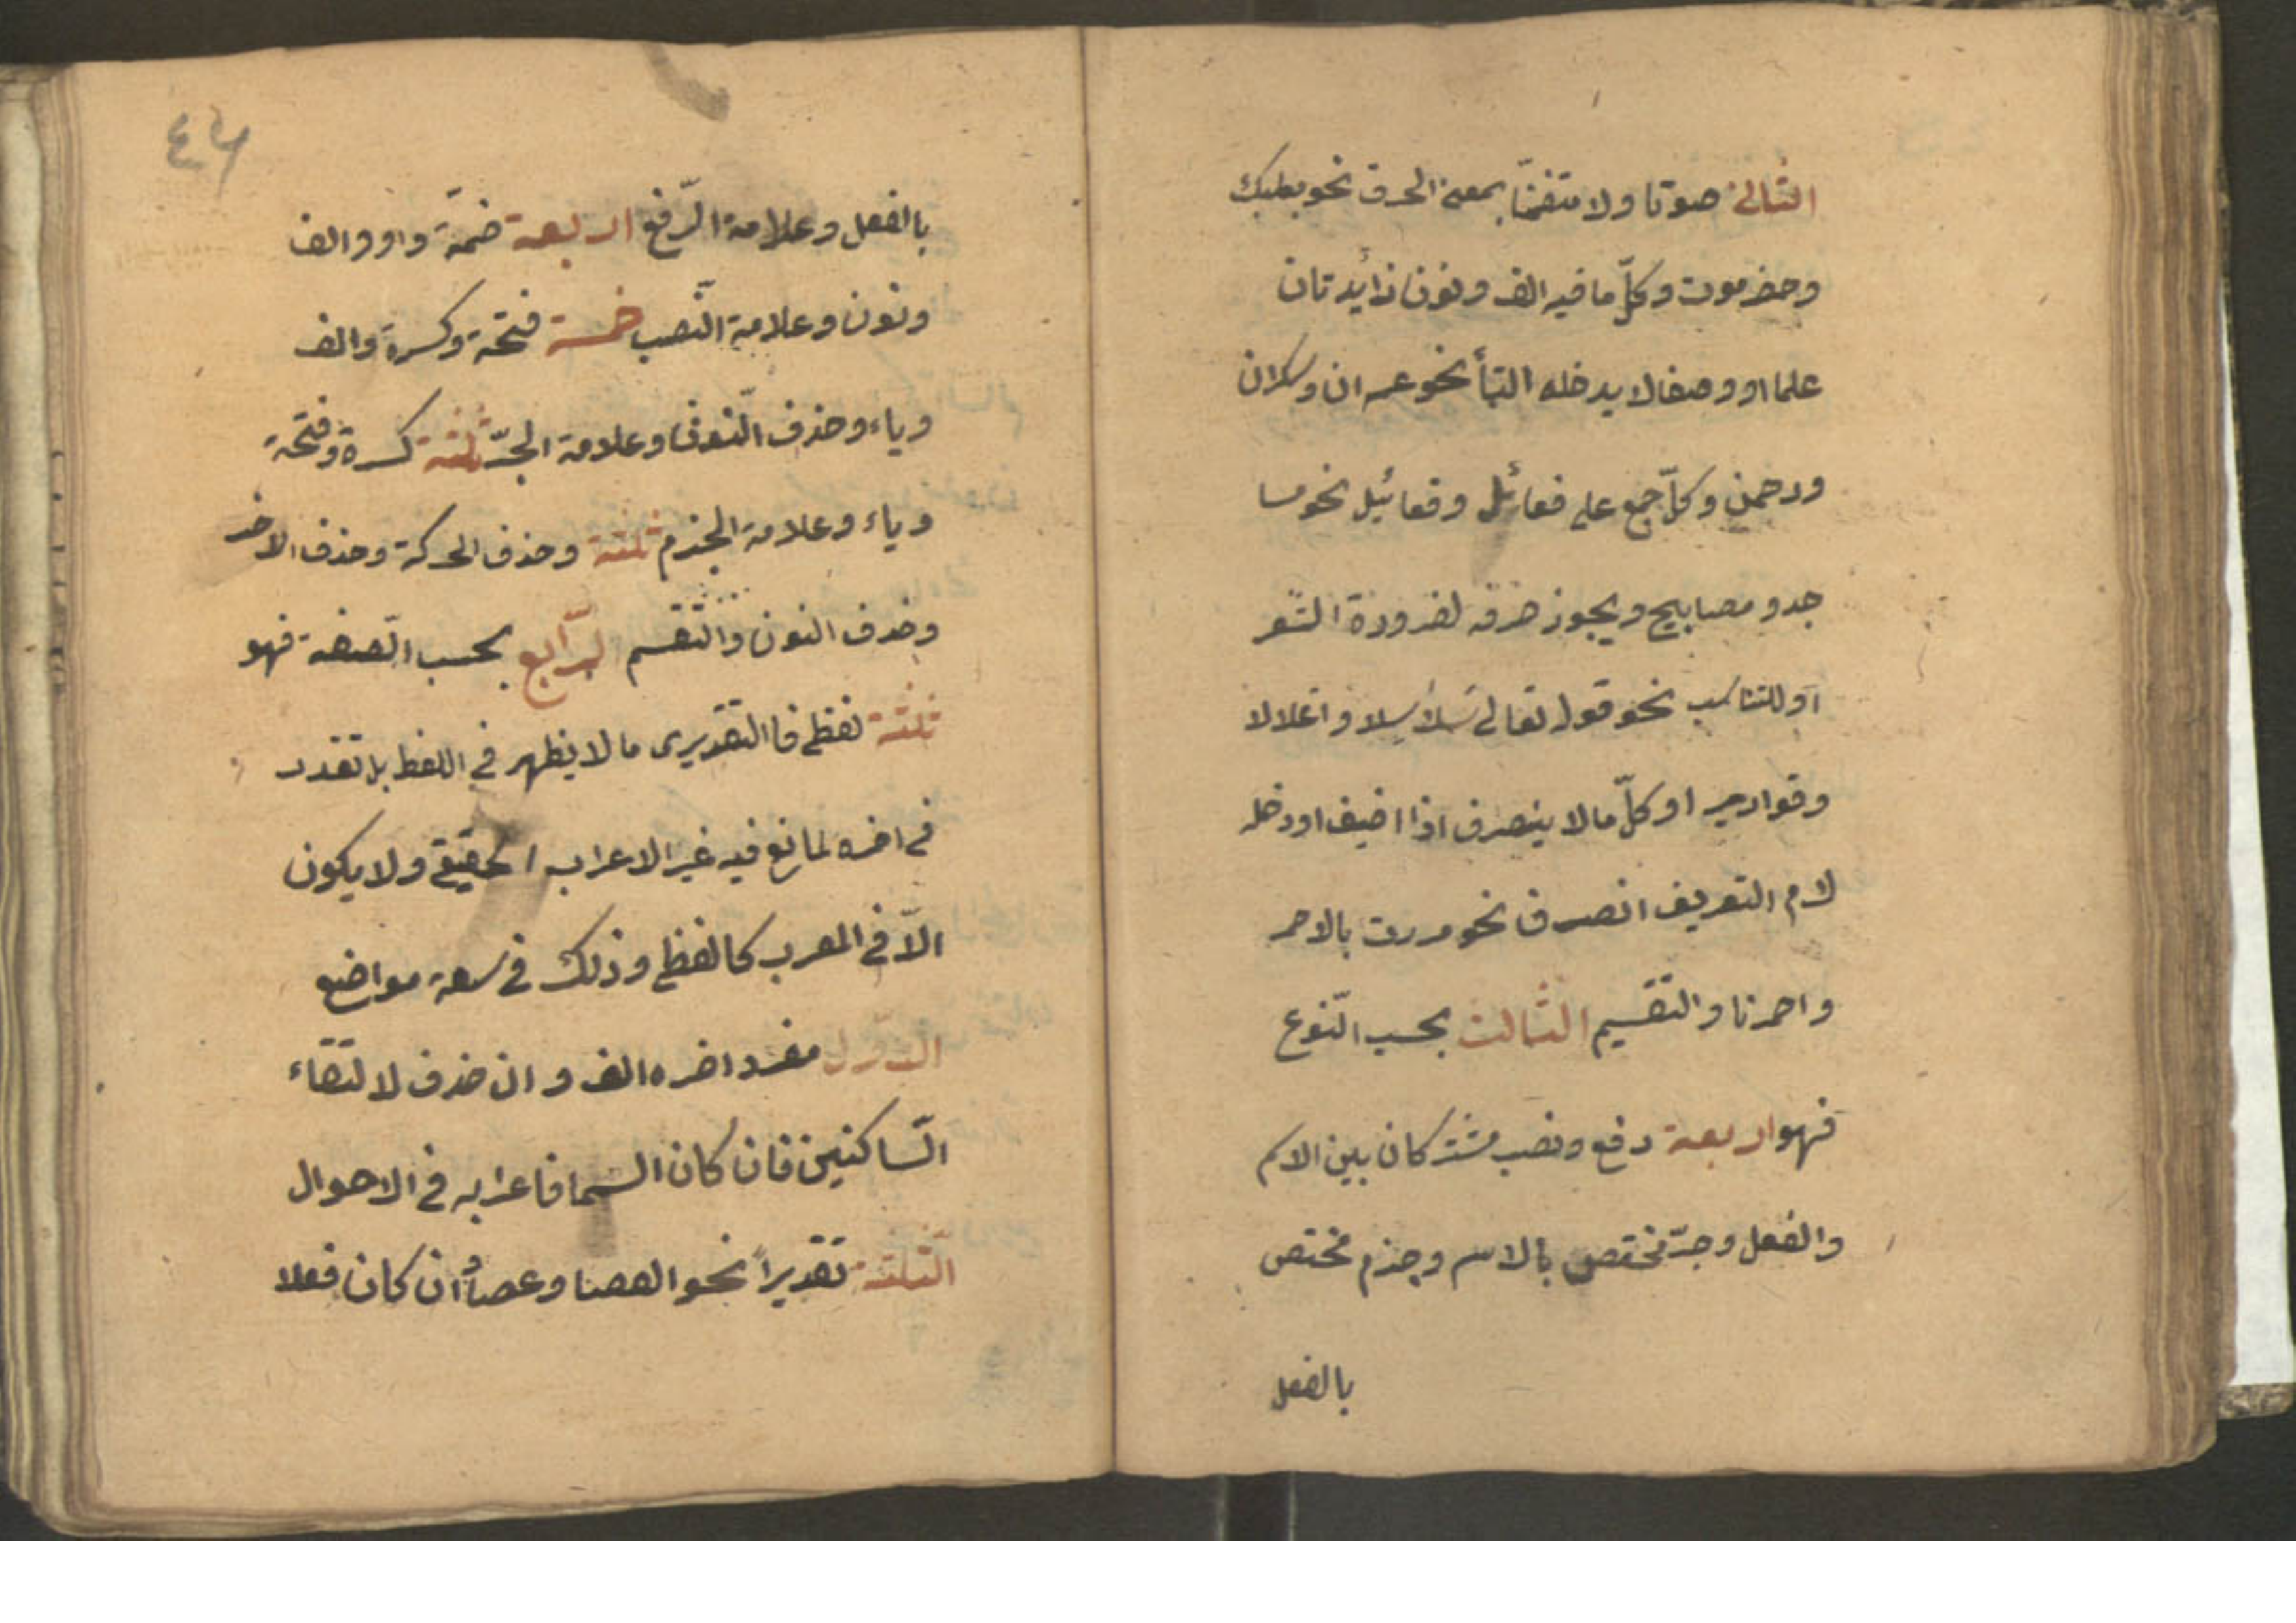 الثانى صوتا ولا متضمّنا بمعنى الحرف نحو بعلبك
وحضرموت وكلّ ما فيه الف ونون زائدتان
علما او وصفا لا يدخله التاء نحو عمران وسكران
ورحمن وكلّ جمع على فعائل وفعائيل نحو مسا
جد ومصابيح ويجوز صرفه لضرورة الشعر
او للتناسب نحو قوله تعالى سلاسلا واغلالا
وقوارير او كلّ ما لا ينصرف اذا اضيف او دخله
لام التعريف انصرف نحو مررت بالاحمر
واحمرنا والتقسيم الثالث بحسب النّوع
فهو اربعة رفع ونصب مشتركان بين الاسم
والفعل وجرّ مختص بالاسم وجزم مختص
بالفعل
٤٦
بالفعل وعلامة الرّفع اربعة ضمّة واو والف
ونون وعلامة النّصب خمسة فتحة وكسرة والف
وياء وحذف النّون وعلامة الجرّ ثلثة كسرة وفتحة
وياء وعلامة الجزم ثلثة وحذف الحركة وحذف الاخر
وحذف النون والتقسم الرّابع بحسب الصفة فهو
ثلثة لفظى فا التقديرى ما لا يظهر فى اللفظ بل تقدر
فى اخره لمانع فيه غير الاعراب الحقيقى ولا يكون
الاّ فى المعرب كالفظى وذلك فى سعة مواضع
الاول مفرد اخره الف وان حذف لالتقاء
السّاكنين فان كان اسما فاعرابه فى الاحوال
الثلثة تقديراً نحو العصا وعصاً وان كان فعلا